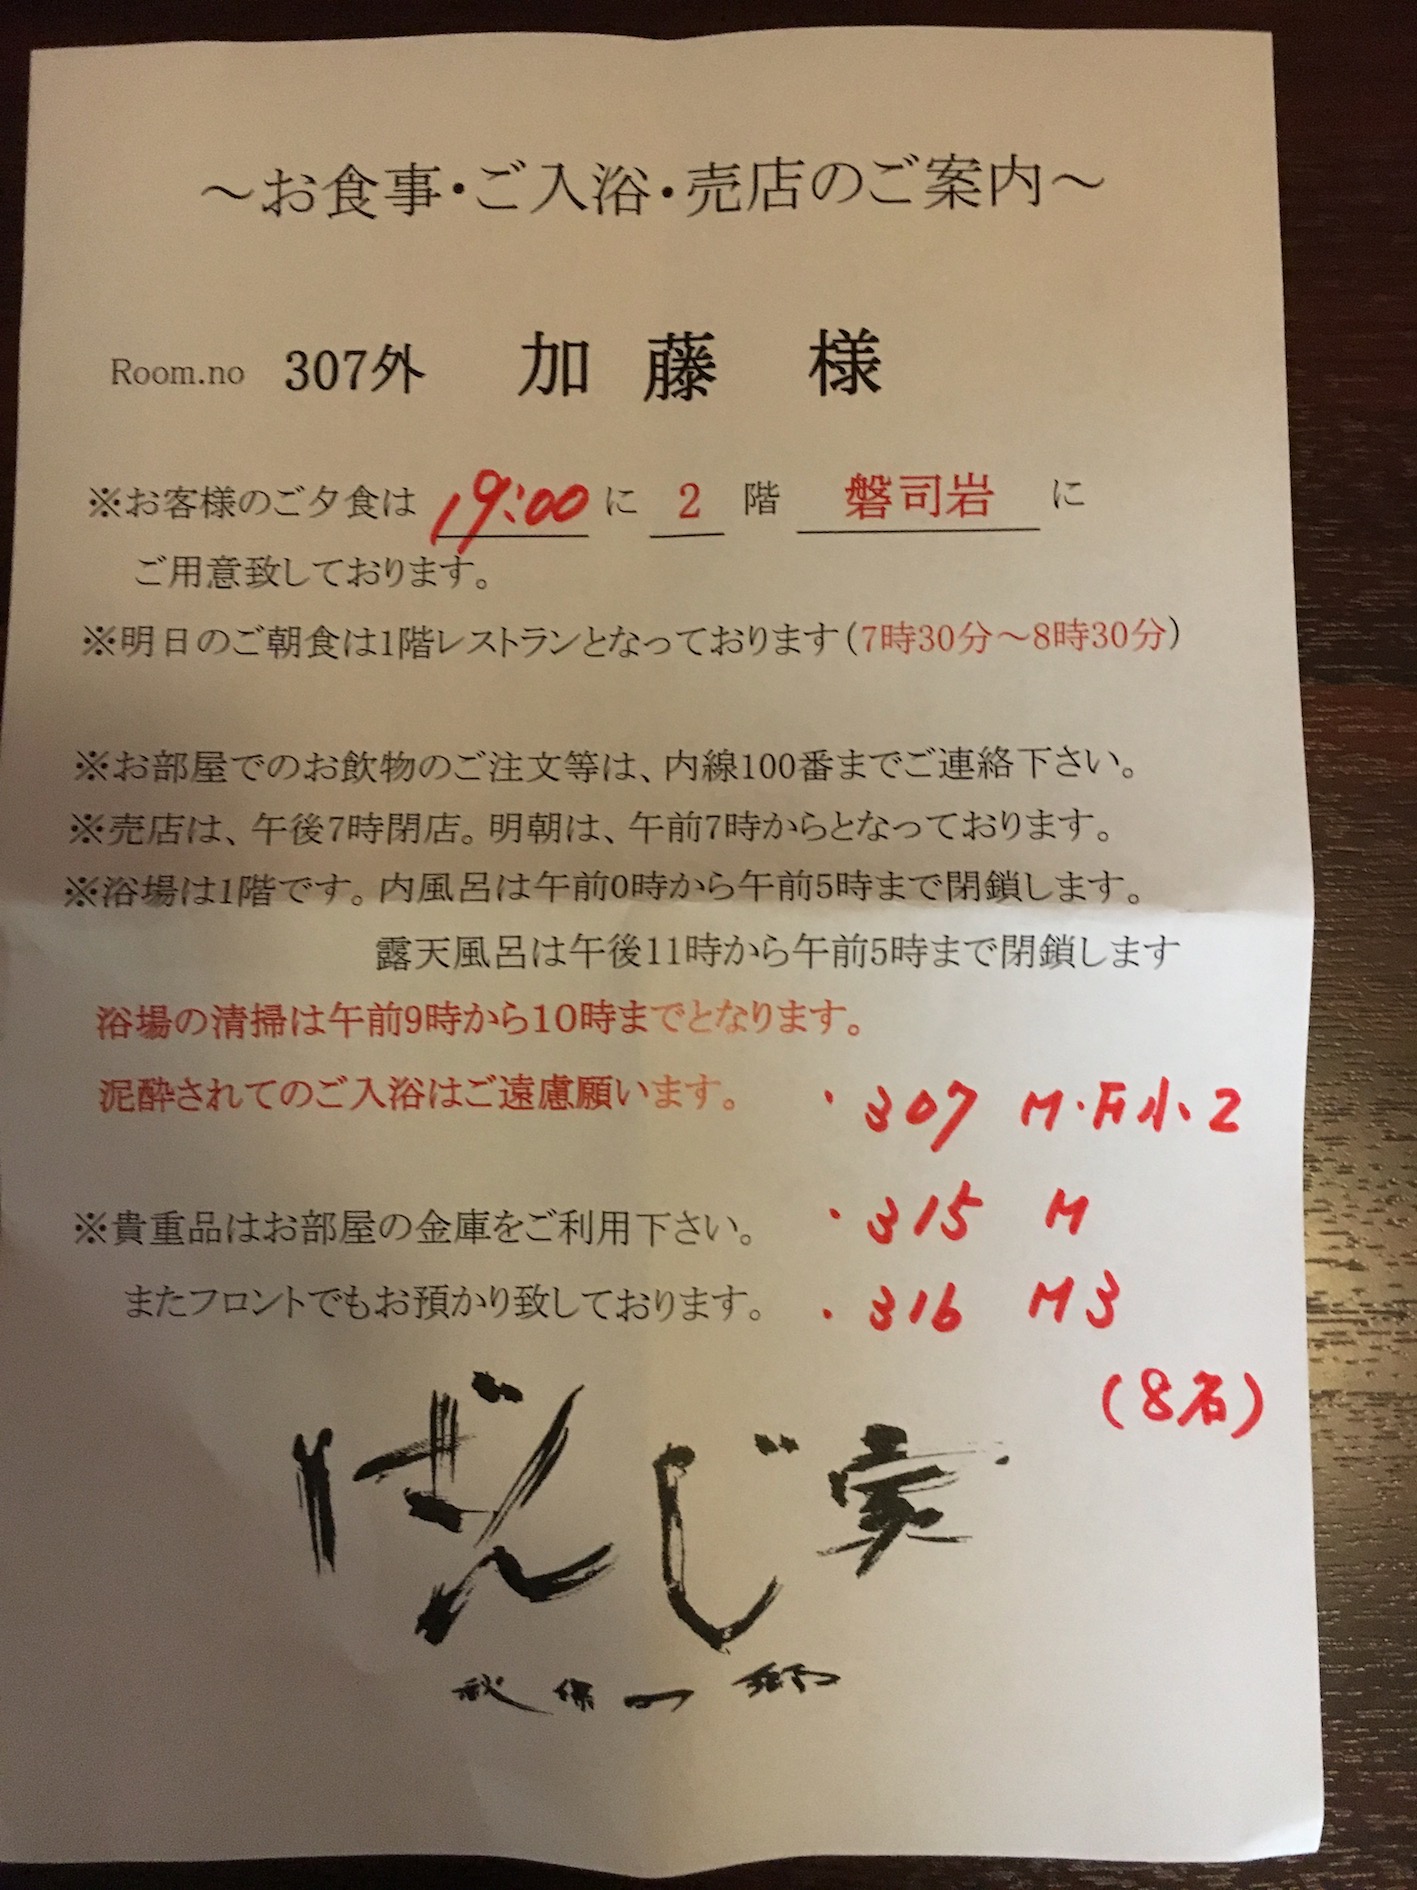 ～お食事・ご入浴・売店のご案内～
Room.no 307外 加 藤 様
※お客様のご夕食は 19:00 に 2 階 磐司岩 に
ご用意致しております。
※明日のご朝食は1階レストランとなっております(7時30分～8時30分)
※お部屋でのお飲物のご注文等は、内線100番までご連絡下さい。
※売店は、午後7時閉店。明朝は、午前7時からとなっております。
※浴場は1階です。内風呂は午前0時から午前5時まで閉鎖します。
露天風呂は午後11時から午前5時まで閉鎖します
浴場の清掃は午前9時から10時までとなります。
泥酔されてのご入浴はご遠慮願います。
・307 M・F小・2
※貴重品はお部屋の金庫をご利用下さい。
・315 M
またフロントでもお預かり致しております。
・316 M3
(8名)
ばんじ家
秋保の郷